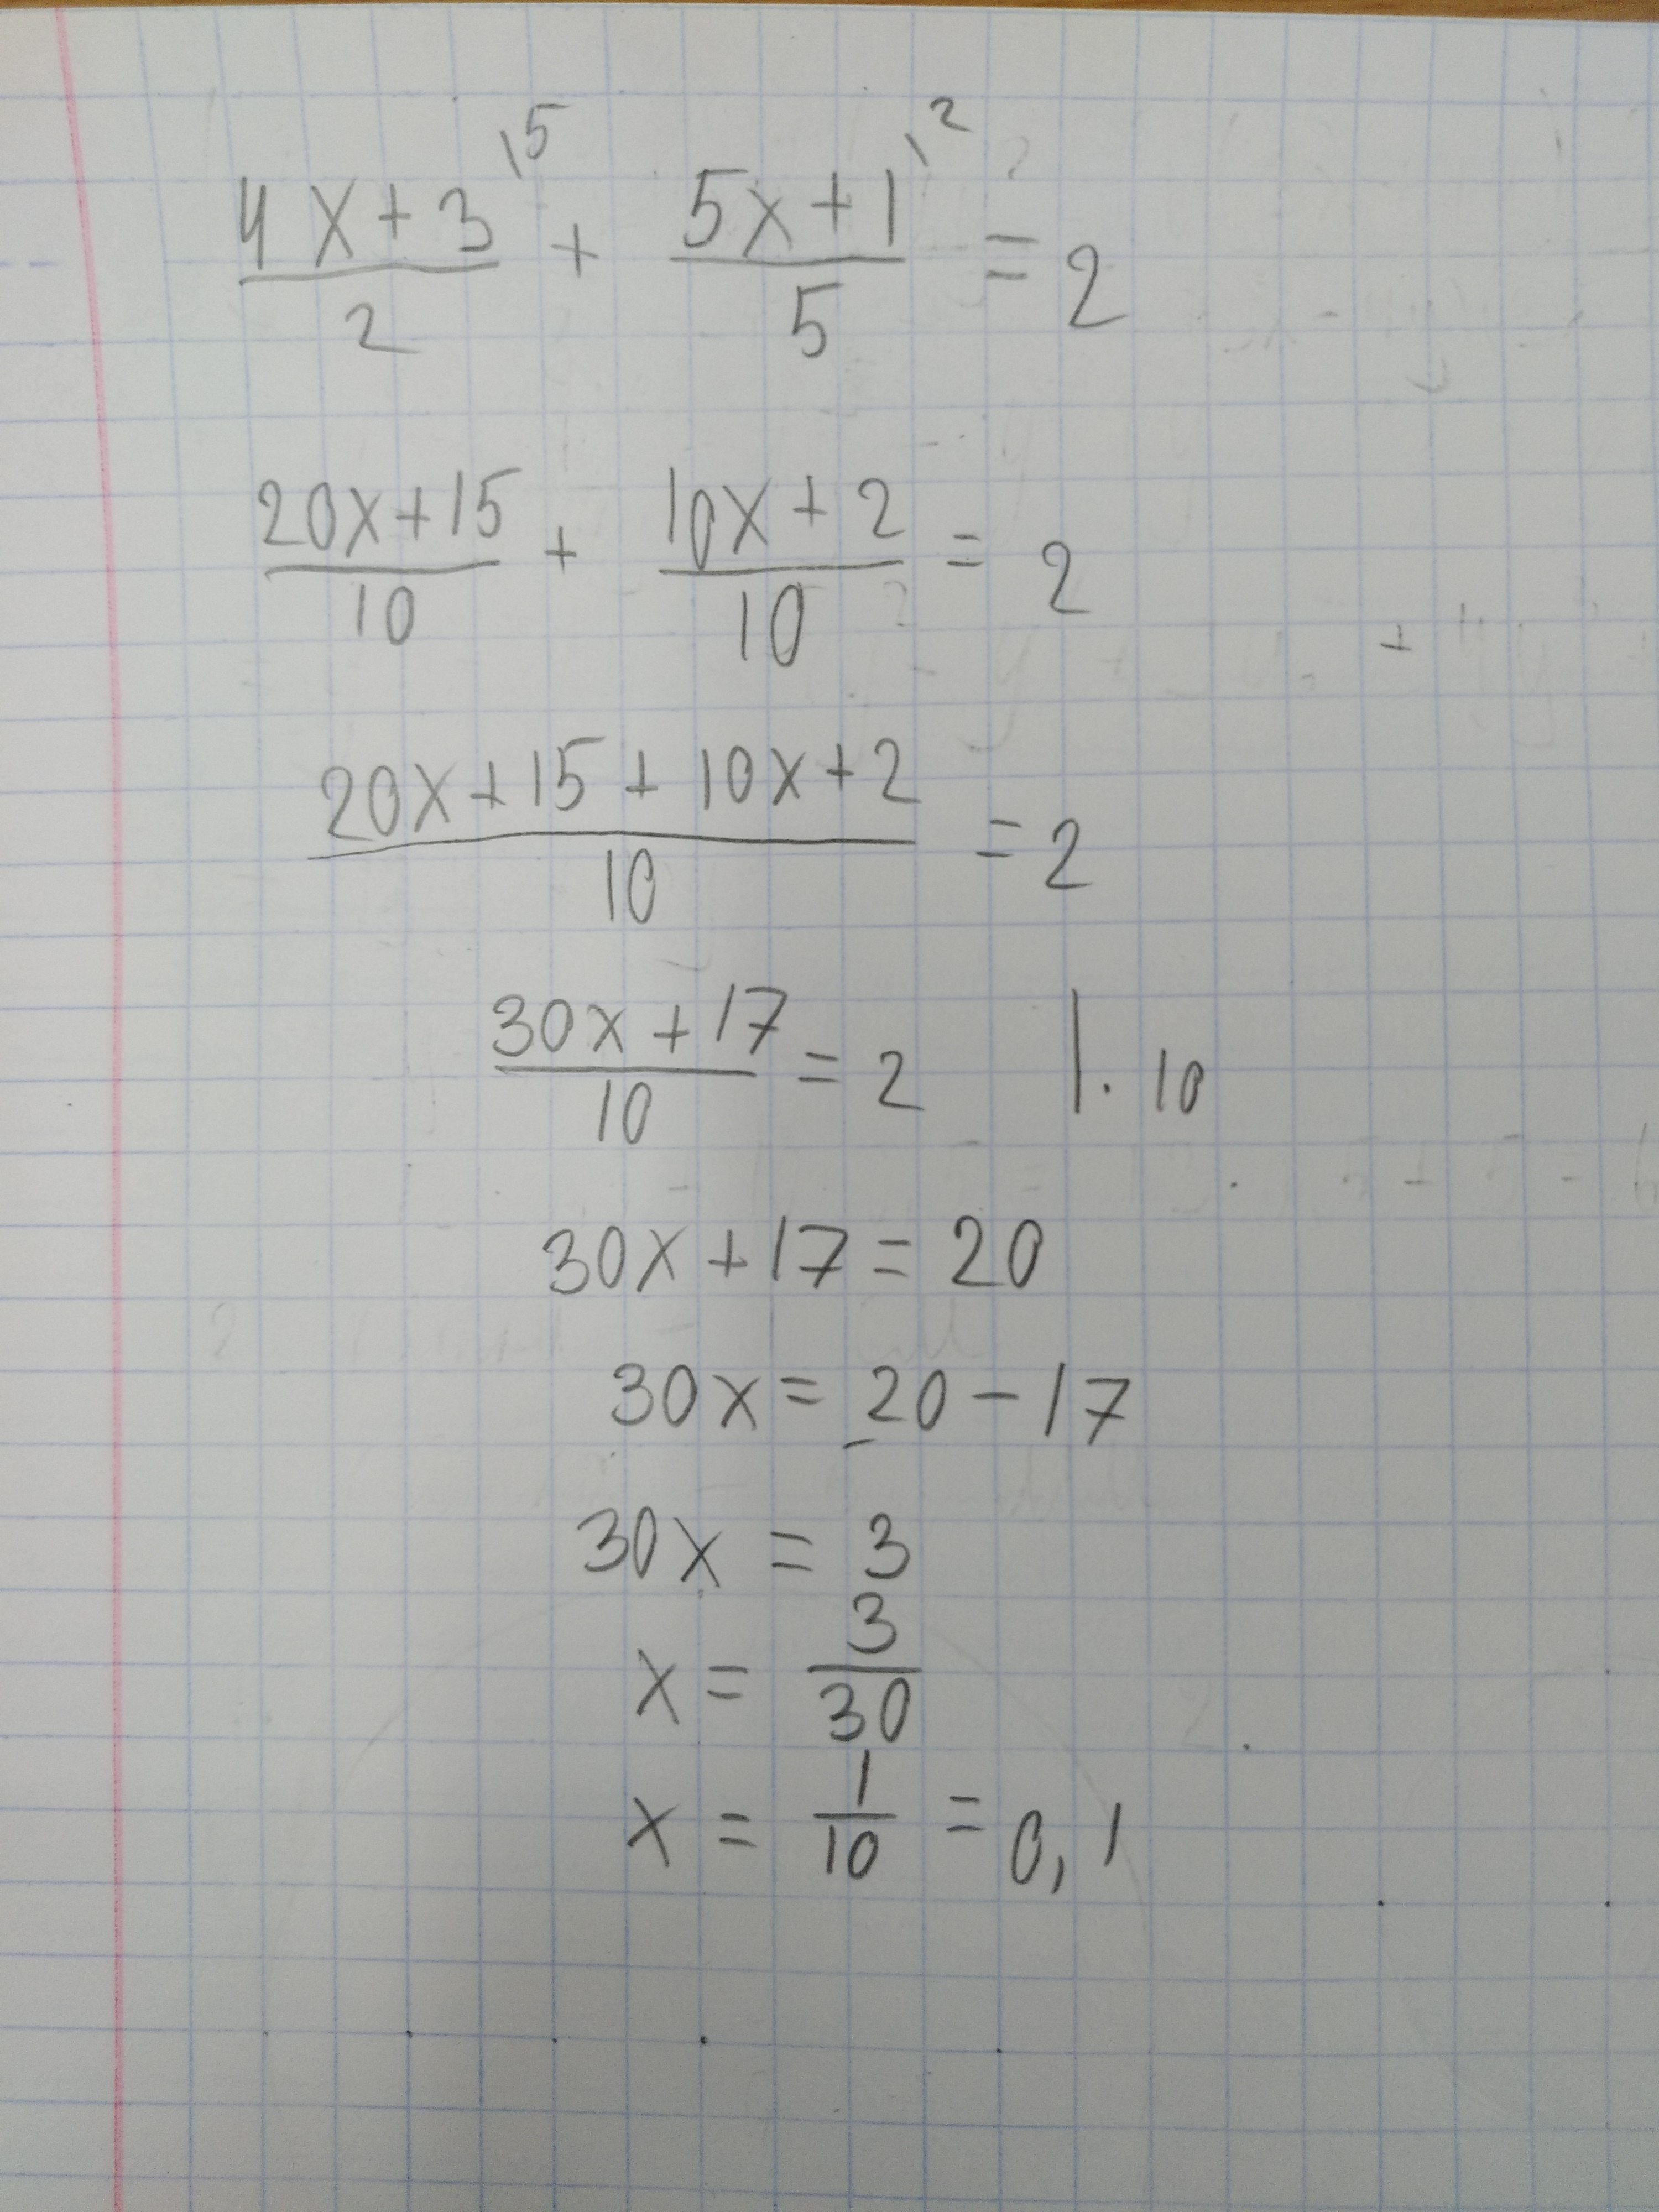 (4x+3)/2 \5 + (5x+1)/5 \2 = 2
(20x+15)/10 + (10x+2)/10 = 2
(20x+15+10x+2)/10 = 2
(30x+17)/10 = 2 |·10
30x+17=20
30x=20-17
30x=3
x=3/30
x=1/10=0,1